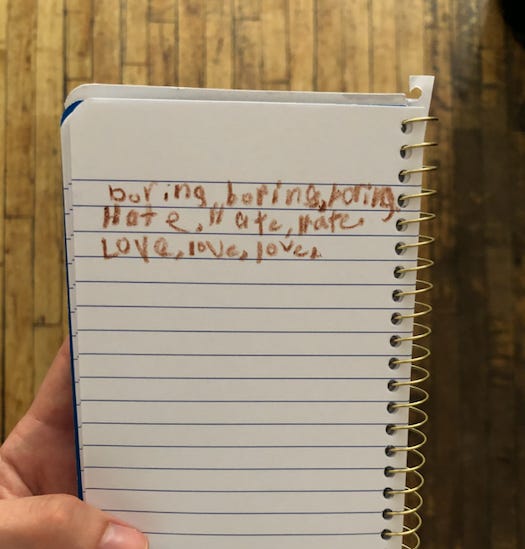 boring, boring, boring
Hate, Hate, Hate
Love, love, love.